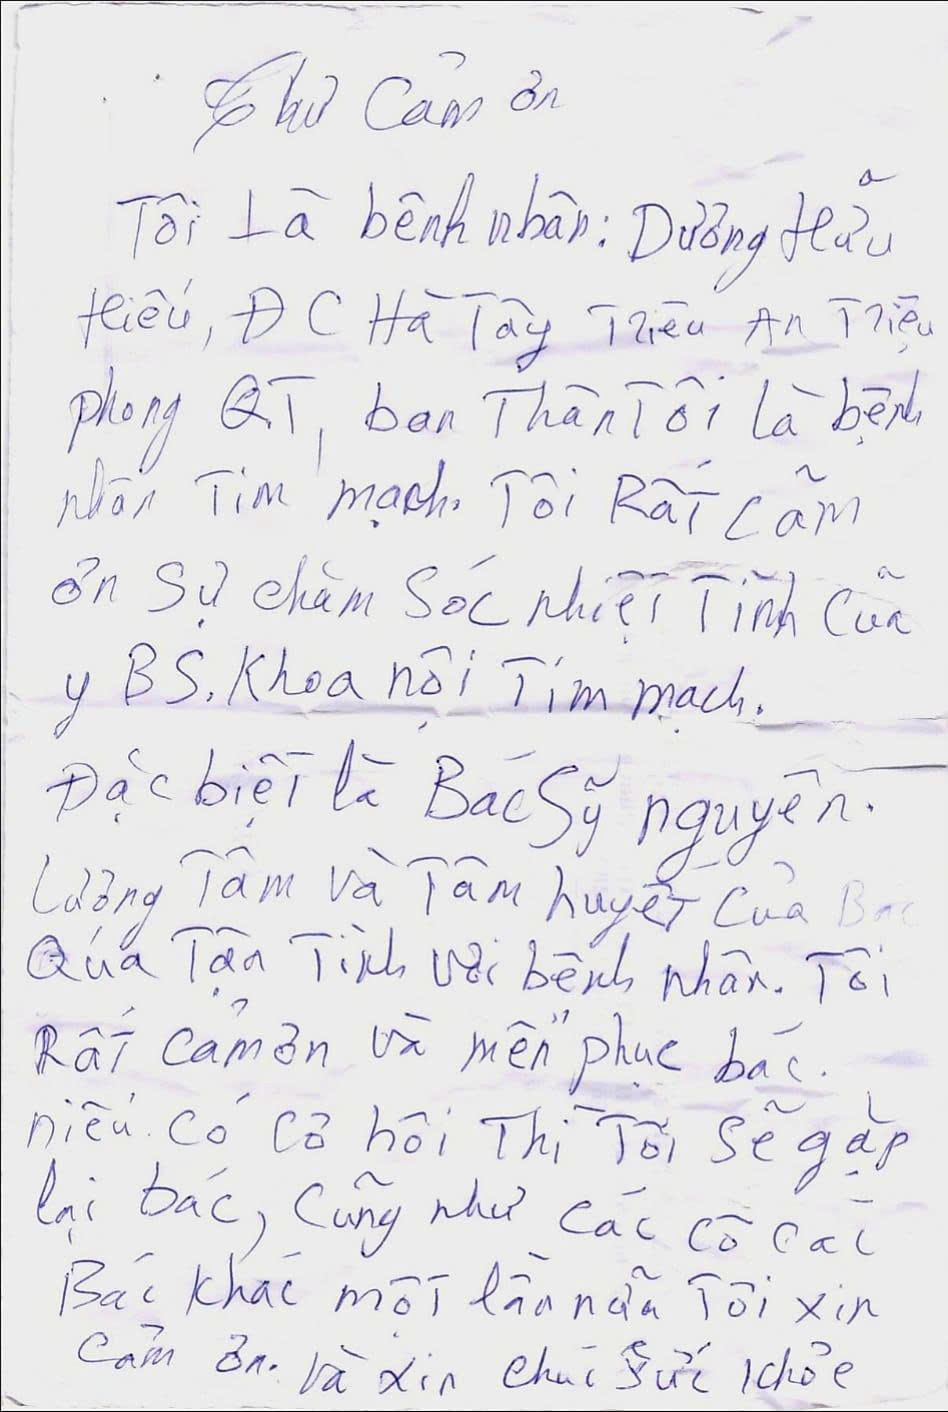 Thư Cảm ơn
Tôi Là bệnh nhân: Dương Hữu
Hiếu, ĐC Hà Tây Triêu An Triệu
phong QT, ban Thân Tôi là bệnh
nhân Tim mạch. Tôi Rất cãm
ơn Sự chăm Sóc nhiệt Tình Cũa
y BS. Khoa nội Tim mạch.
Đặc biệt là Bác Sỹ nguyên.
Lương Tâm và Tâm huyết của Bác
Qúa Tận Tình với bệnh nhân. Tôi
Rất cảm ơn và mến phục bác.
niếu có cơ hôi Thì Tôi Sẽ gặp
lại bác, Cũng như các cô các
Bác khác một lần nữa Tôi xin
cảm ơn. và xin chúc sức khỏe